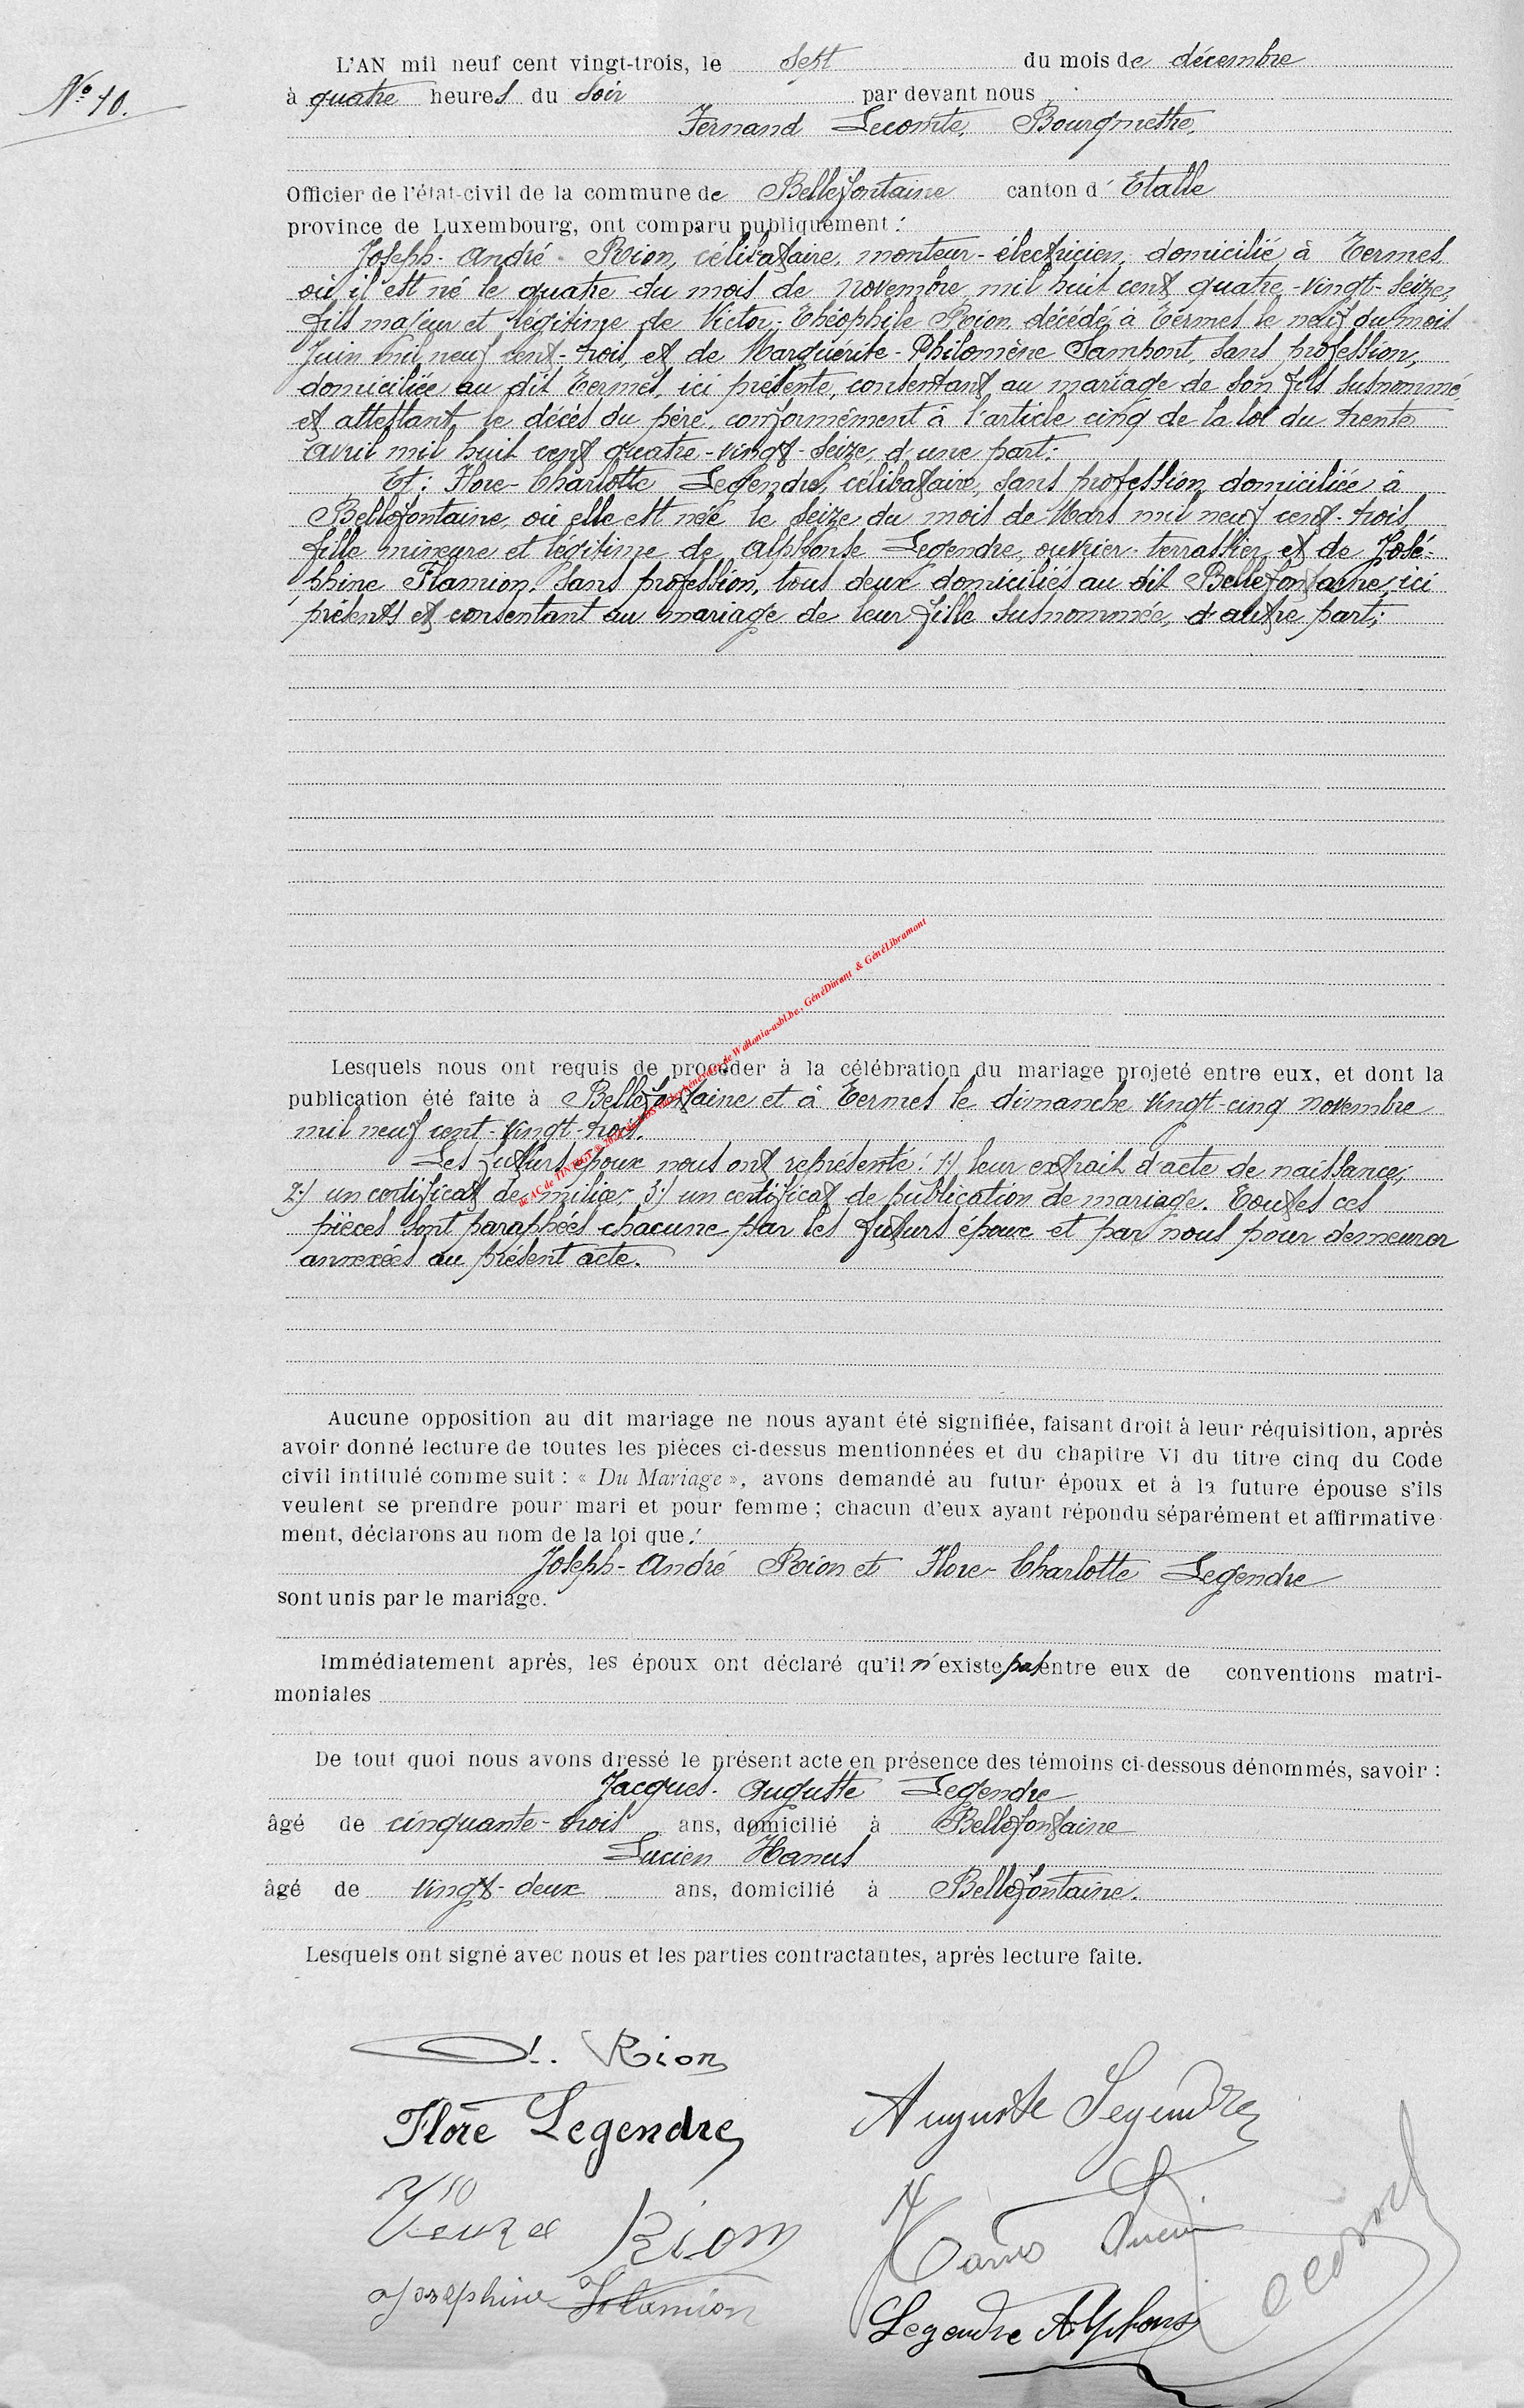 N° 10.
L'AN mil neuf cent vingt-trois, le sept du mois de décembre
à quatre heures du soir par devant nous
Fernand Lecomte, Bourgmestre,
Officier de l'état-civil de la commune de Bellefontaine canton d' Etalle
province de Luxembourg, ont comparu publiquement :
Joseph-André Rion, célibataire, monteur-électricien, domicilié à Termes
où il est né le quatre du mois de novembre mil huit cent quatre-vingt-seize,
fils majeur et légitime de Victor-Théophile Rion décédé à Termes le neuf du mois
Juin mil neuf cent-trois, et de Marguérite-Philomène Sampont, sans profession,
domiciliée au dit Termes, ici présente, consentant au mariage de son fils susnommé
et attestant le décès du père, conformément à l'article cinq de la loi du trente
avril mil huit cent quatre-vingt-seize, d'une part:
Et: Flore-Charlotte Legendre, célibataire, sans profession domiciliée à
Bellefontaine, où elle est née le seize du mois de Mars mil neuf cent-trois,
fille mineure et légitime de Alphonse Legendre ouvrier-terrassier et de José-
phine Flamion, sans profession, tous deux domiciliés au dit Bellefontaine, ici
présents et consentant au mariage de leur fille susnommée, d'autre part;
Lesquels nous ont requis de procéder à la célébration du mariage projeté entre eux, et dont la
publication été faite à Bellefontaine et à Termes le dimanche vingt-cinq novembre
mil neuf cent-vingt-trois.
Les futurs époux nous ont représenté: 1:) leur extrait d'acte de naissance;
2:) un certificat de milice; 3:) un certificat de publication de mariage. Toutes ces
pièces sont paraphées chacune par les futurs époux et par nous pour demeurer
annexées au présent acte.
& GénéDinant & GénéLibramont
Aucune opposition au dit mariage ne nous ayant été signifiée, faisant droit à leur réquisition, après
avoir donné lecture de toutes les pièces ci-dessus mentionnées et du chapitre VI du titre cinq du Code
civil intitulé comme suit : « Du Mariage », avons demandé au futur époux et à la future épouse s'ils
veulent se prendre pour mari et pour femme ; chacun d'eux ayant répondu séparément et affirmative-
ment, déclarons au nom de la loi que:
Joseph-André Rion et Flore-Charlotte Legendre
sont unis par le mariage.
Immédiatement après, les époux ont déclaré qu'il n'existe pas entre eux de conventions matri-
moniales
De tout quoi nous avons dressé le présent acte en présence des témoins ci-dessous dénommés, savoir :
Jacques-Auguste Legendre
âgé de cinquante-trois ans, domicilié à Bellefontaine
Lucien Hanus
âgé de vingt-deux ans, domicilié à Bellefontaine.
Lesquels ont signé avec nous et les parties contractantes, après lecture faite.
Rion
Flore Legendre
Auguste Legendre
Veuve Rion
Hanus Lucien
Josephine Flamion
Legendre Alphons